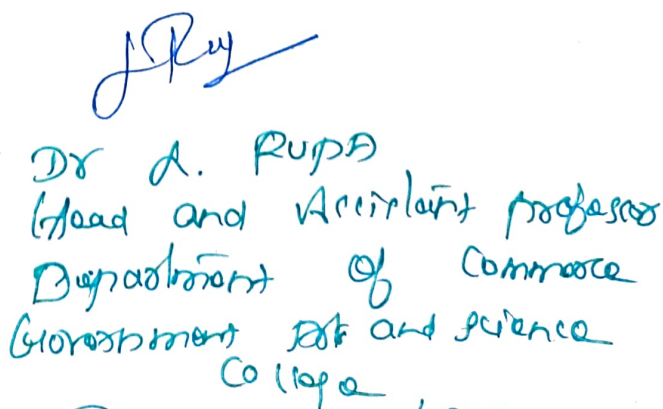 Dr A. RUPA
Head and Assistant professor
Department of Commerce
Government Art and Science
College